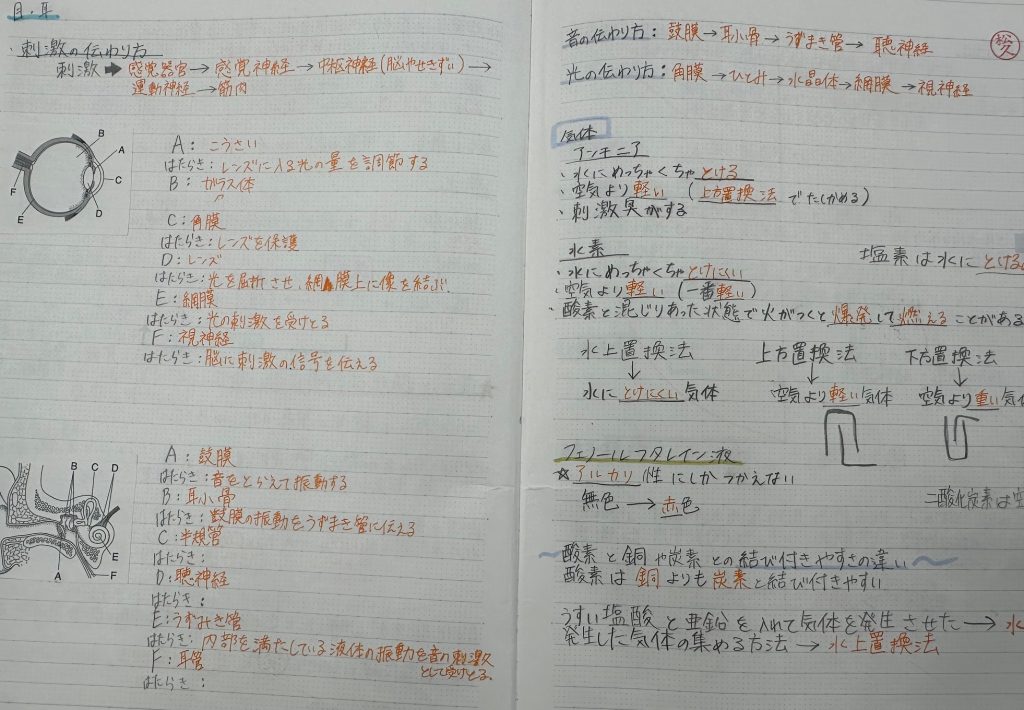 目・耳
・刺激の伝わり方
刺激➡感覚器官→感覚神経→中枢神経(脳やせきずい)→
運動神経→筋肉
B
A
C
D
E
F
A:こうさい
はたらき:レンズに入る光の量を調節する
B:ガラス体
C:角膜
はたらき:レンズを保護
D:レンズ
はたらき:光を屈折させ、網膜上に像を結ぶ.
E:網膜
はたらき:光の刺激を受けとる
F:視神経
はたらき:脳に刺激の信号を伝える
B C D
A
E
F
A:鼓膜
はたらき:音をとらえて振動する
B:耳小骨
はたらき:鼓膜の振動をうずまき管に伝える
C:半規管
はたらき:
D:聴神経
はたらき:
E:うずみき管
はたらき:内部を満たしている液体の振動を音の刺激
として受けとる.
F:耳管
はたらき:
音の伝わり方:鼓膜→耳小骨→うずまき管→聴神経
光の伝わり方:角膜→ひとみ→水晶体→網膜→視神経
気体
アンモニア
・水にめっちゃくちゃとける
・空気より軽い(上方置換法でたしかめる)
・刺激臭がする
水素
・水にめっちゃくちゃとけにくい
・空気より軽い(一番軽い)
・酸素と混じりあった状態で火がつくと爆発して燃えることがある
塩素は水にとける
水上置換法 上方置換法 下方置換法
↓ ↓ ↓
水にとけにくい気体 空気より軽い気体 空気より重い気体
フェノールフタレイン液
☆アルカリ性にしかつかえない
無色→赤色
二酸化炭素は空
〜酸素と銅や炭素との結び付きやすさの違い〜
酸素は銅よりも炭素と結び付きやすい
うすい塩酸と亜鉛を入れて気体を発生させた→水
発生した気体の集める方法→水上置換法